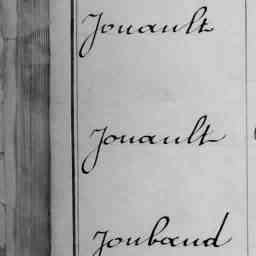 Jouault
Jouault
Joubaud